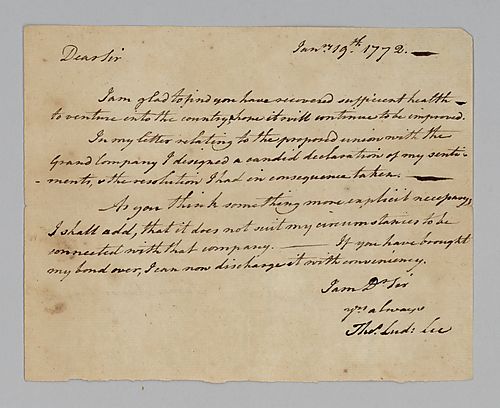 Jan.ry 19.th 1772.
Dear Sir
I am glad to find you have recovered sufficient health
to venture into the country, hope it will continue to be improved.
In my letter relating to the proposed union with the
Grand Company I designed a candid declaration of my senti-
-ments, & the resolution I had in consequence taken.
As you think something more explicit necessary,
I shall add, that it does not suit my circumstances to be
connected with that company. — If you have brought
my bond over, I can now discharge it with conveniency.
I am D.r Sir
yrs always
Thos. Lud: Lee